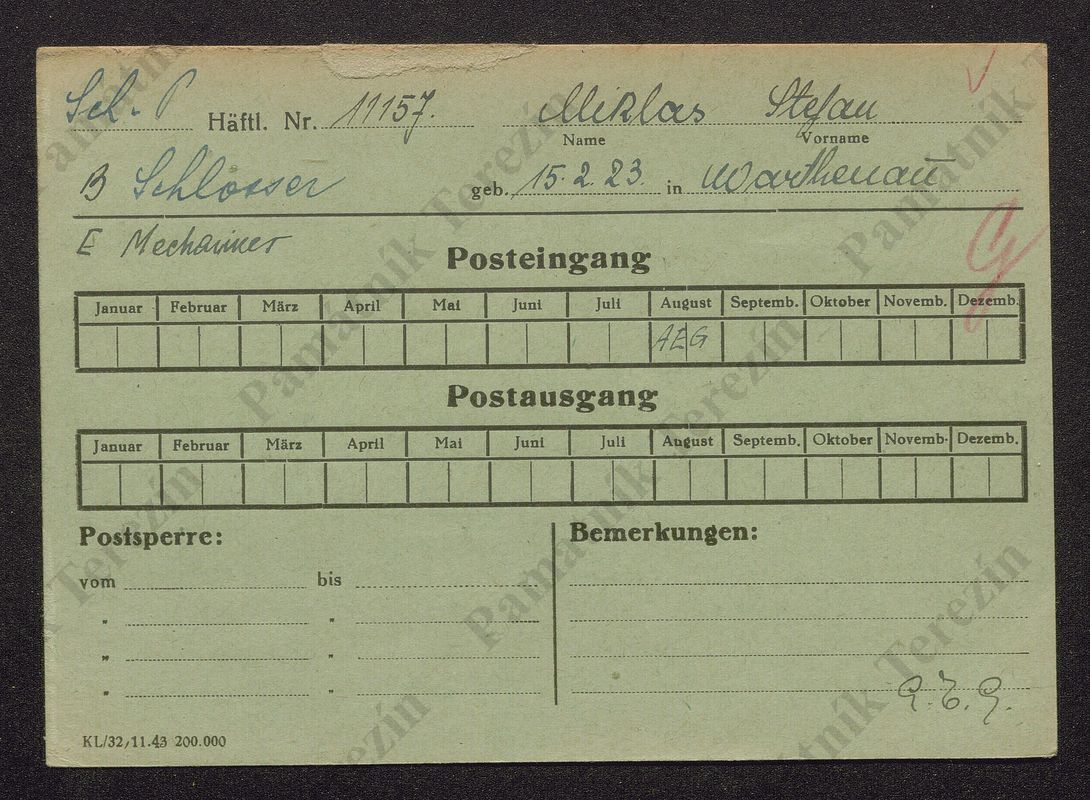 Sch.-P Häftl. Nr. 11157. Miklas Stefan
Name Vorname
B Schlosser geb. 15.2.23. in Warthenau
E Mechaniker
Posteingang
Januar Februar März April Mai Juni Juli August Septemb. Oktober Novemb. Dezemb.
AEG
Postausgang
Januar Februar März April Mai Juni Juli August Septemb. Oktober Novemb. Dezemb.
Postsperre: Bemerkungen:
vom bis
" "
" "
" "
KL/32/11.43 200.000
Památník Terezín